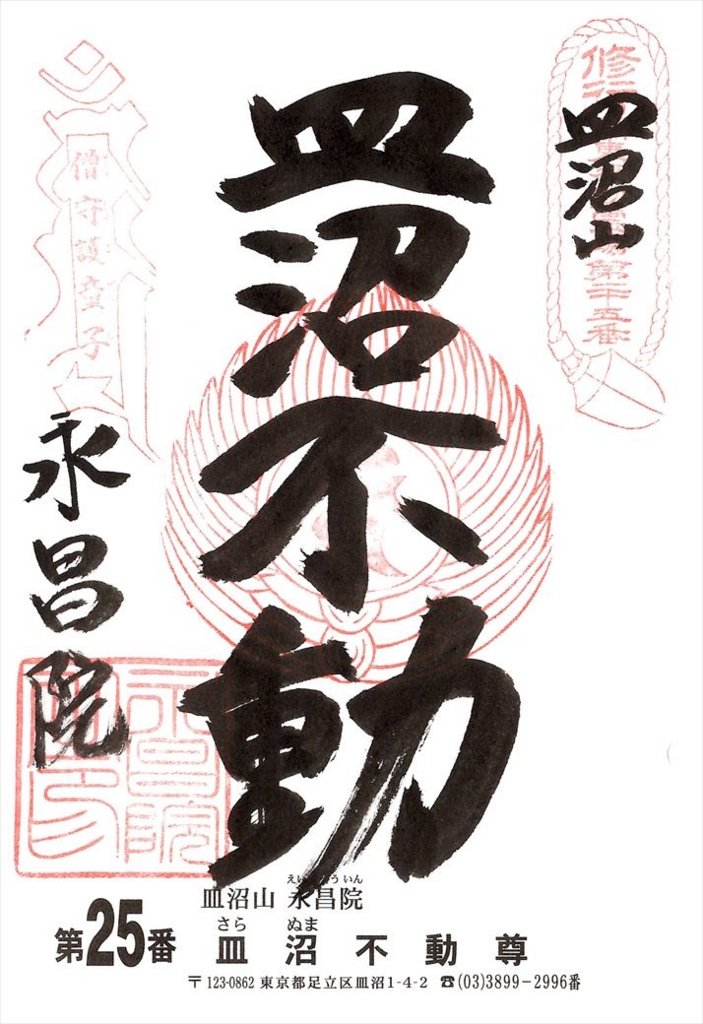 修
第二十五番
皿沼山
皿沼不動
僧守護童子
永昌院
永昌院印
えい ういん
皿沼山 永昌院
さら ぬま
第25番 皿沼不動尊
〒123-0862 東京都足立区皿沼1-4-2 ☎(03)3899-2996番